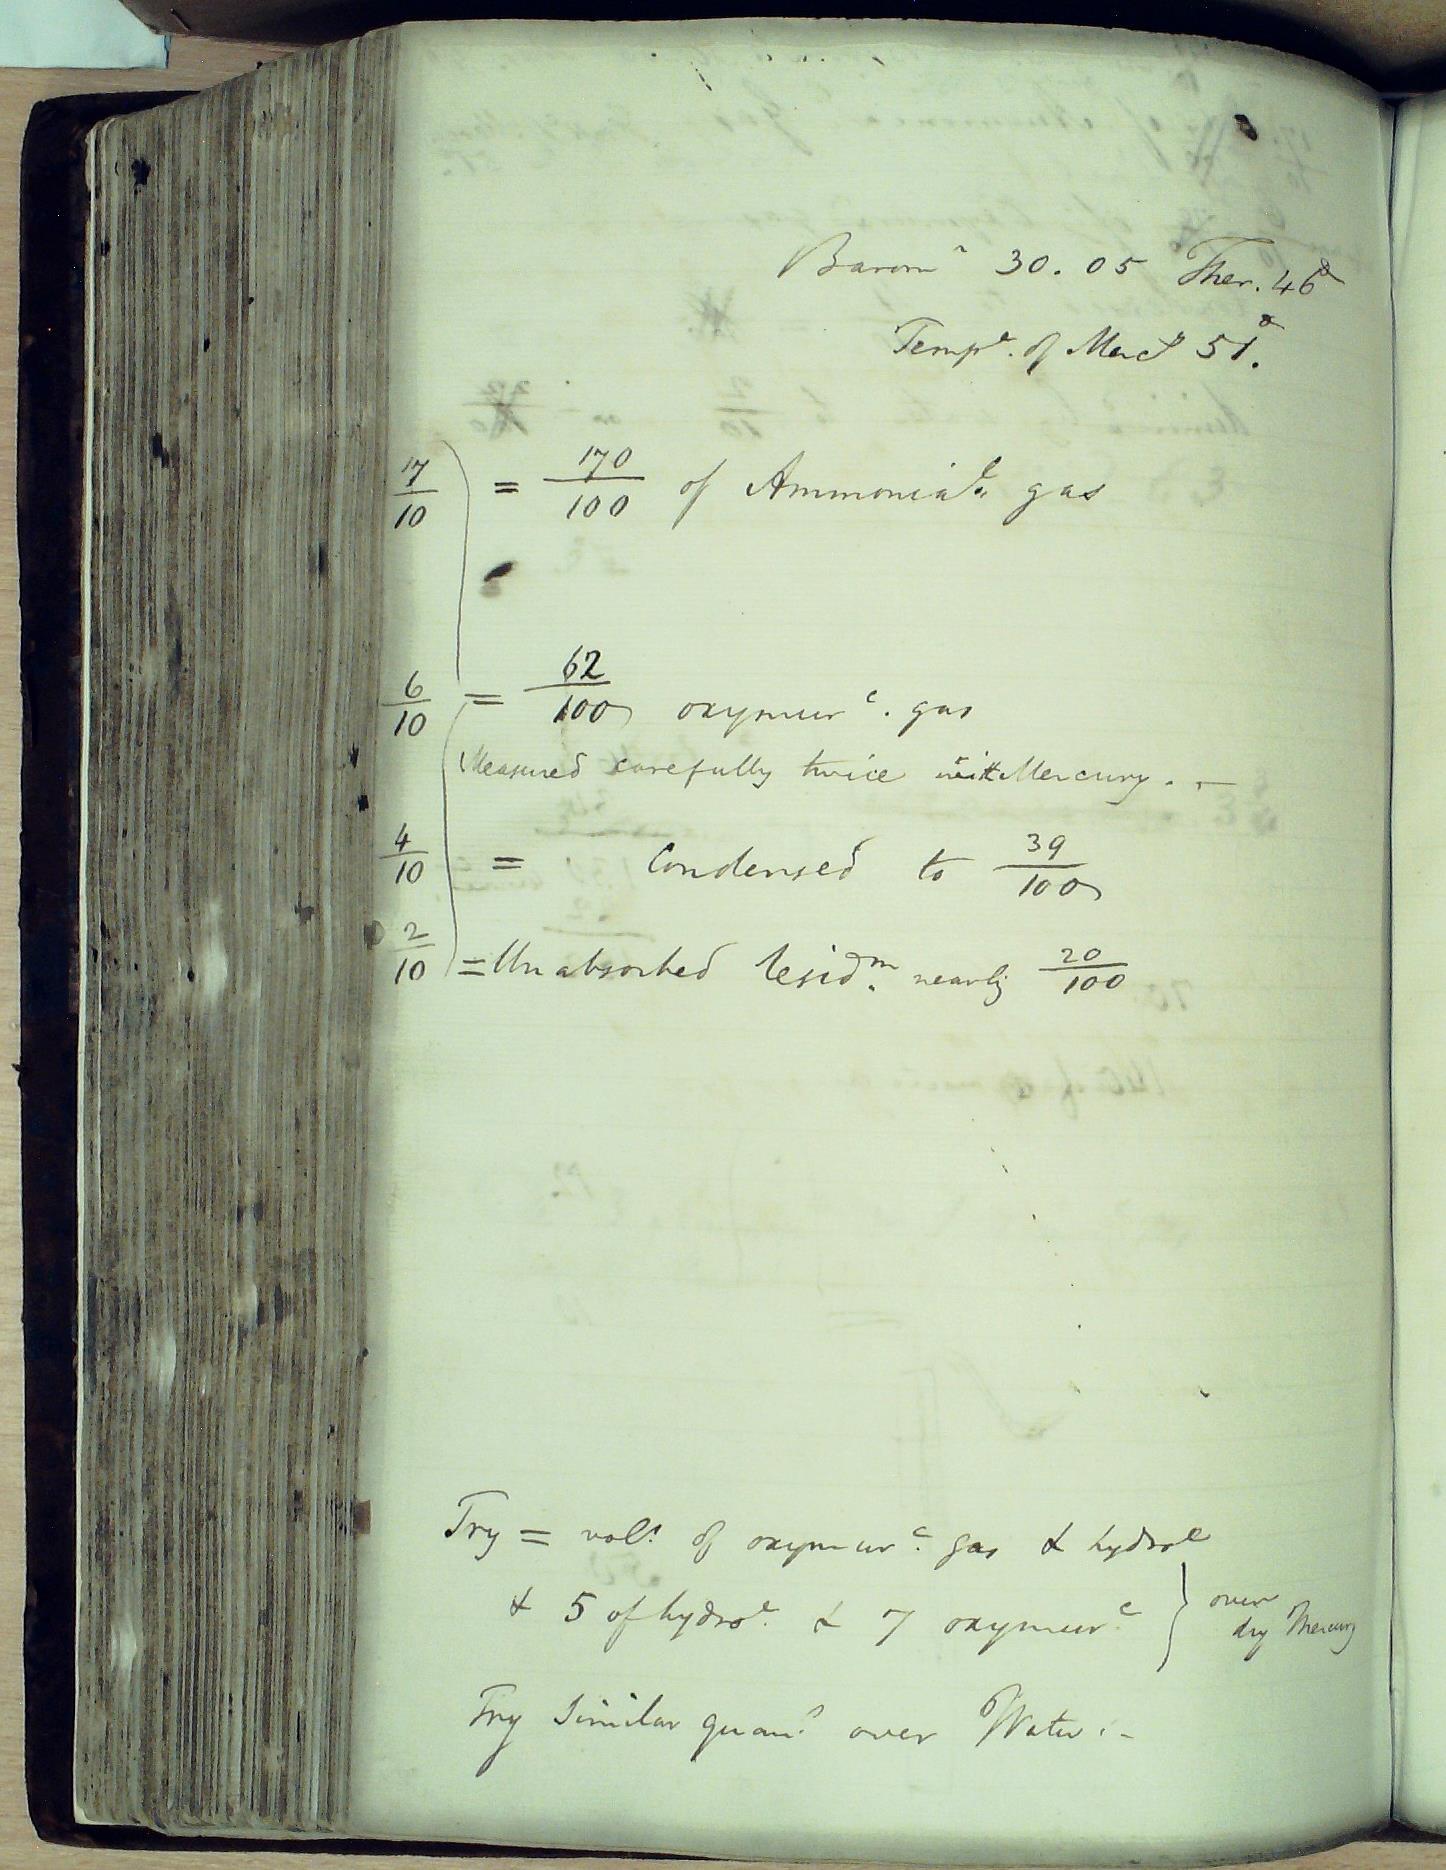 Barom^r 30.05 Ther. 46°
Temp^e. of Merc^y 51°.
17/10 = 170/100 of Ammonia^l. gas
6/10 = 62/100 oxymur^c. gas
Measured carefully twice with Mercury. –
4/10 = Condensed to 39/100
2/10 = Unabsorbed Resid^m. nearly 20/100
Try = vol^s. of oxymur^c. gas & hydro^e
& 5 of hydro^e. & 7 oxymur^c. } over
dry Mercury
Try Similar quan^s. over Water. –